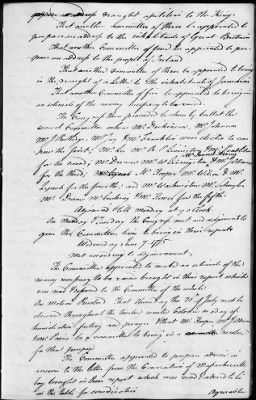 prepare a draught a petition to the King
That another Committee of three be appointed to
prepare an address to the inhabitants of Great Britain
That another Committee of five be appointed to pre-
pare an address to the people of Ireland
That another Committee of three be appointed to bring
in the draught of a letter to the inhabitants of Jamaica
That another Committee of five be appointed to bring in
an estimate of the money necessary to be raised
The Congress then proceeded to chuse by ballot the
several Committees when Mr Dickinson, Mr Johnson
Mr J Rutledge, Mr Jay & Mr Franklin were chosen to com
pose the first; Mr Lee Mr R Livingston & Mr Pendleton
for the second; Mr Duane Mr W Livingston
for the third, Mr Hooper Mr Wilson & Mr
Lynch for the fourth; and Mr Washington Mr Schuyler
Mr Deane Mr Cushing & Mr Hewes for the fifth
Adjourned till Monday at 9 o'clock
On Monday & Tuesday the Congress met and adjourned to
give the Committees time to bring in their reports
Wednesday June 7. 1775
Met according to adjournment
The Committee appointed to make an estimate of the
money necessary to be raised brought in their report which
was read & referred to the Committee of the whole
On Motion Resolved That Thursday the 20 of July next be
observed throughout the twelve united Colonies as a day of
humiliation fasting and prayer & that Mr Hooper Mr J Adams
& Mr Paine be a committee to bring in a resolve
for that purpose
The Committee appointed to prepare advice in
answer to the letter from the Convention of Massachusetts
bay brought in their report which was read & ordered to lie
on the table for consideration
Agreeable